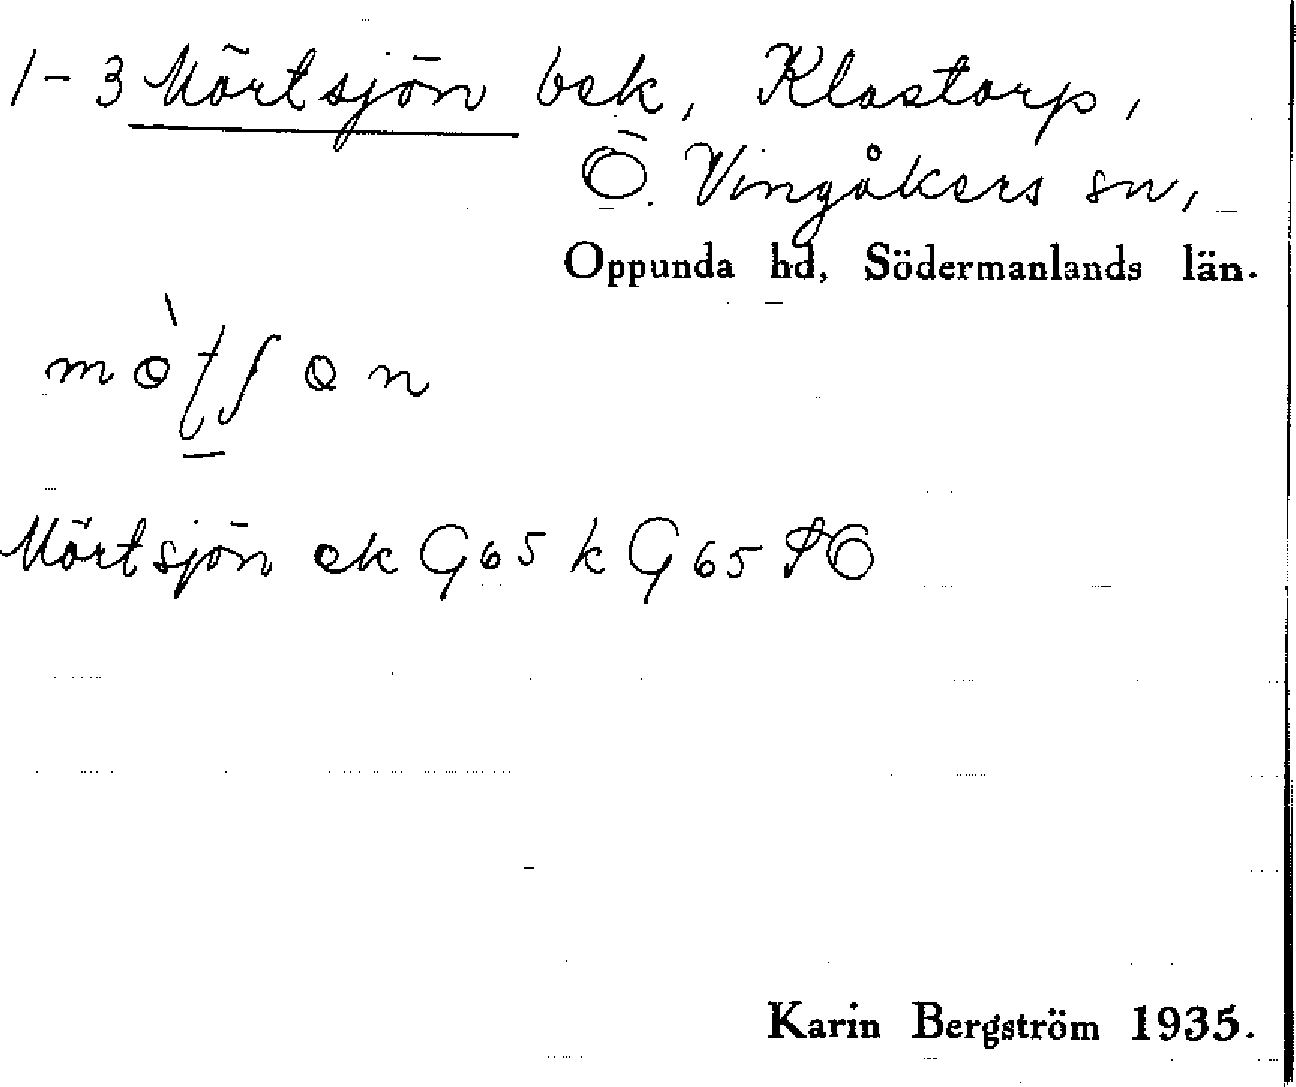 1-3 Mörtsjön bek, Klastorp,
Ö. Vingåkers sn,
Oppunda hd, Södermanlands län.
Mörtsjön ek G65 k G65 SO
Karin Bergström 1935.